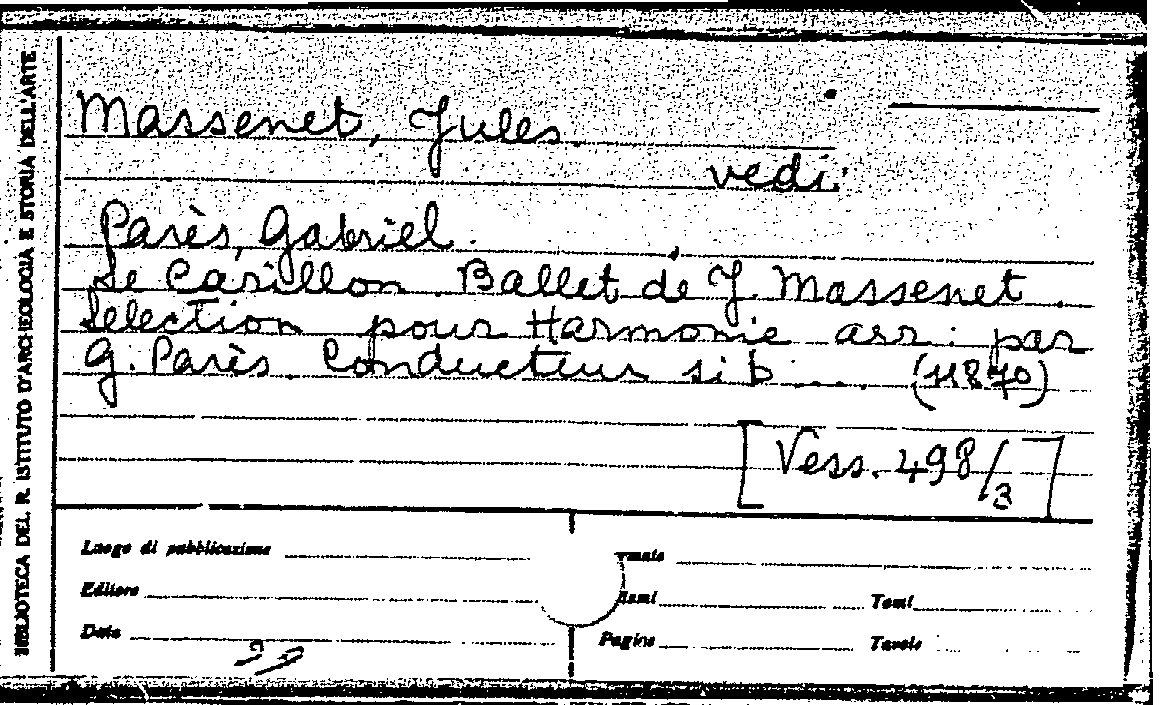 BIBLIOTECA DEL R. ISTITUTO D'ARCHEOLOGIA E STORIA DELL'ARTE
Massenet, Jules
vedi:
Parès, Gabriel.
Le Carillon. Ballet de J. Massenet.
Selection pour Harmonie arr. par
G. Parès. Conducteur si b .... (11870)
[Vess. 498/3]
Luogo di pubblicazione
Editore
Data
Tomi
Pagine
Tavole